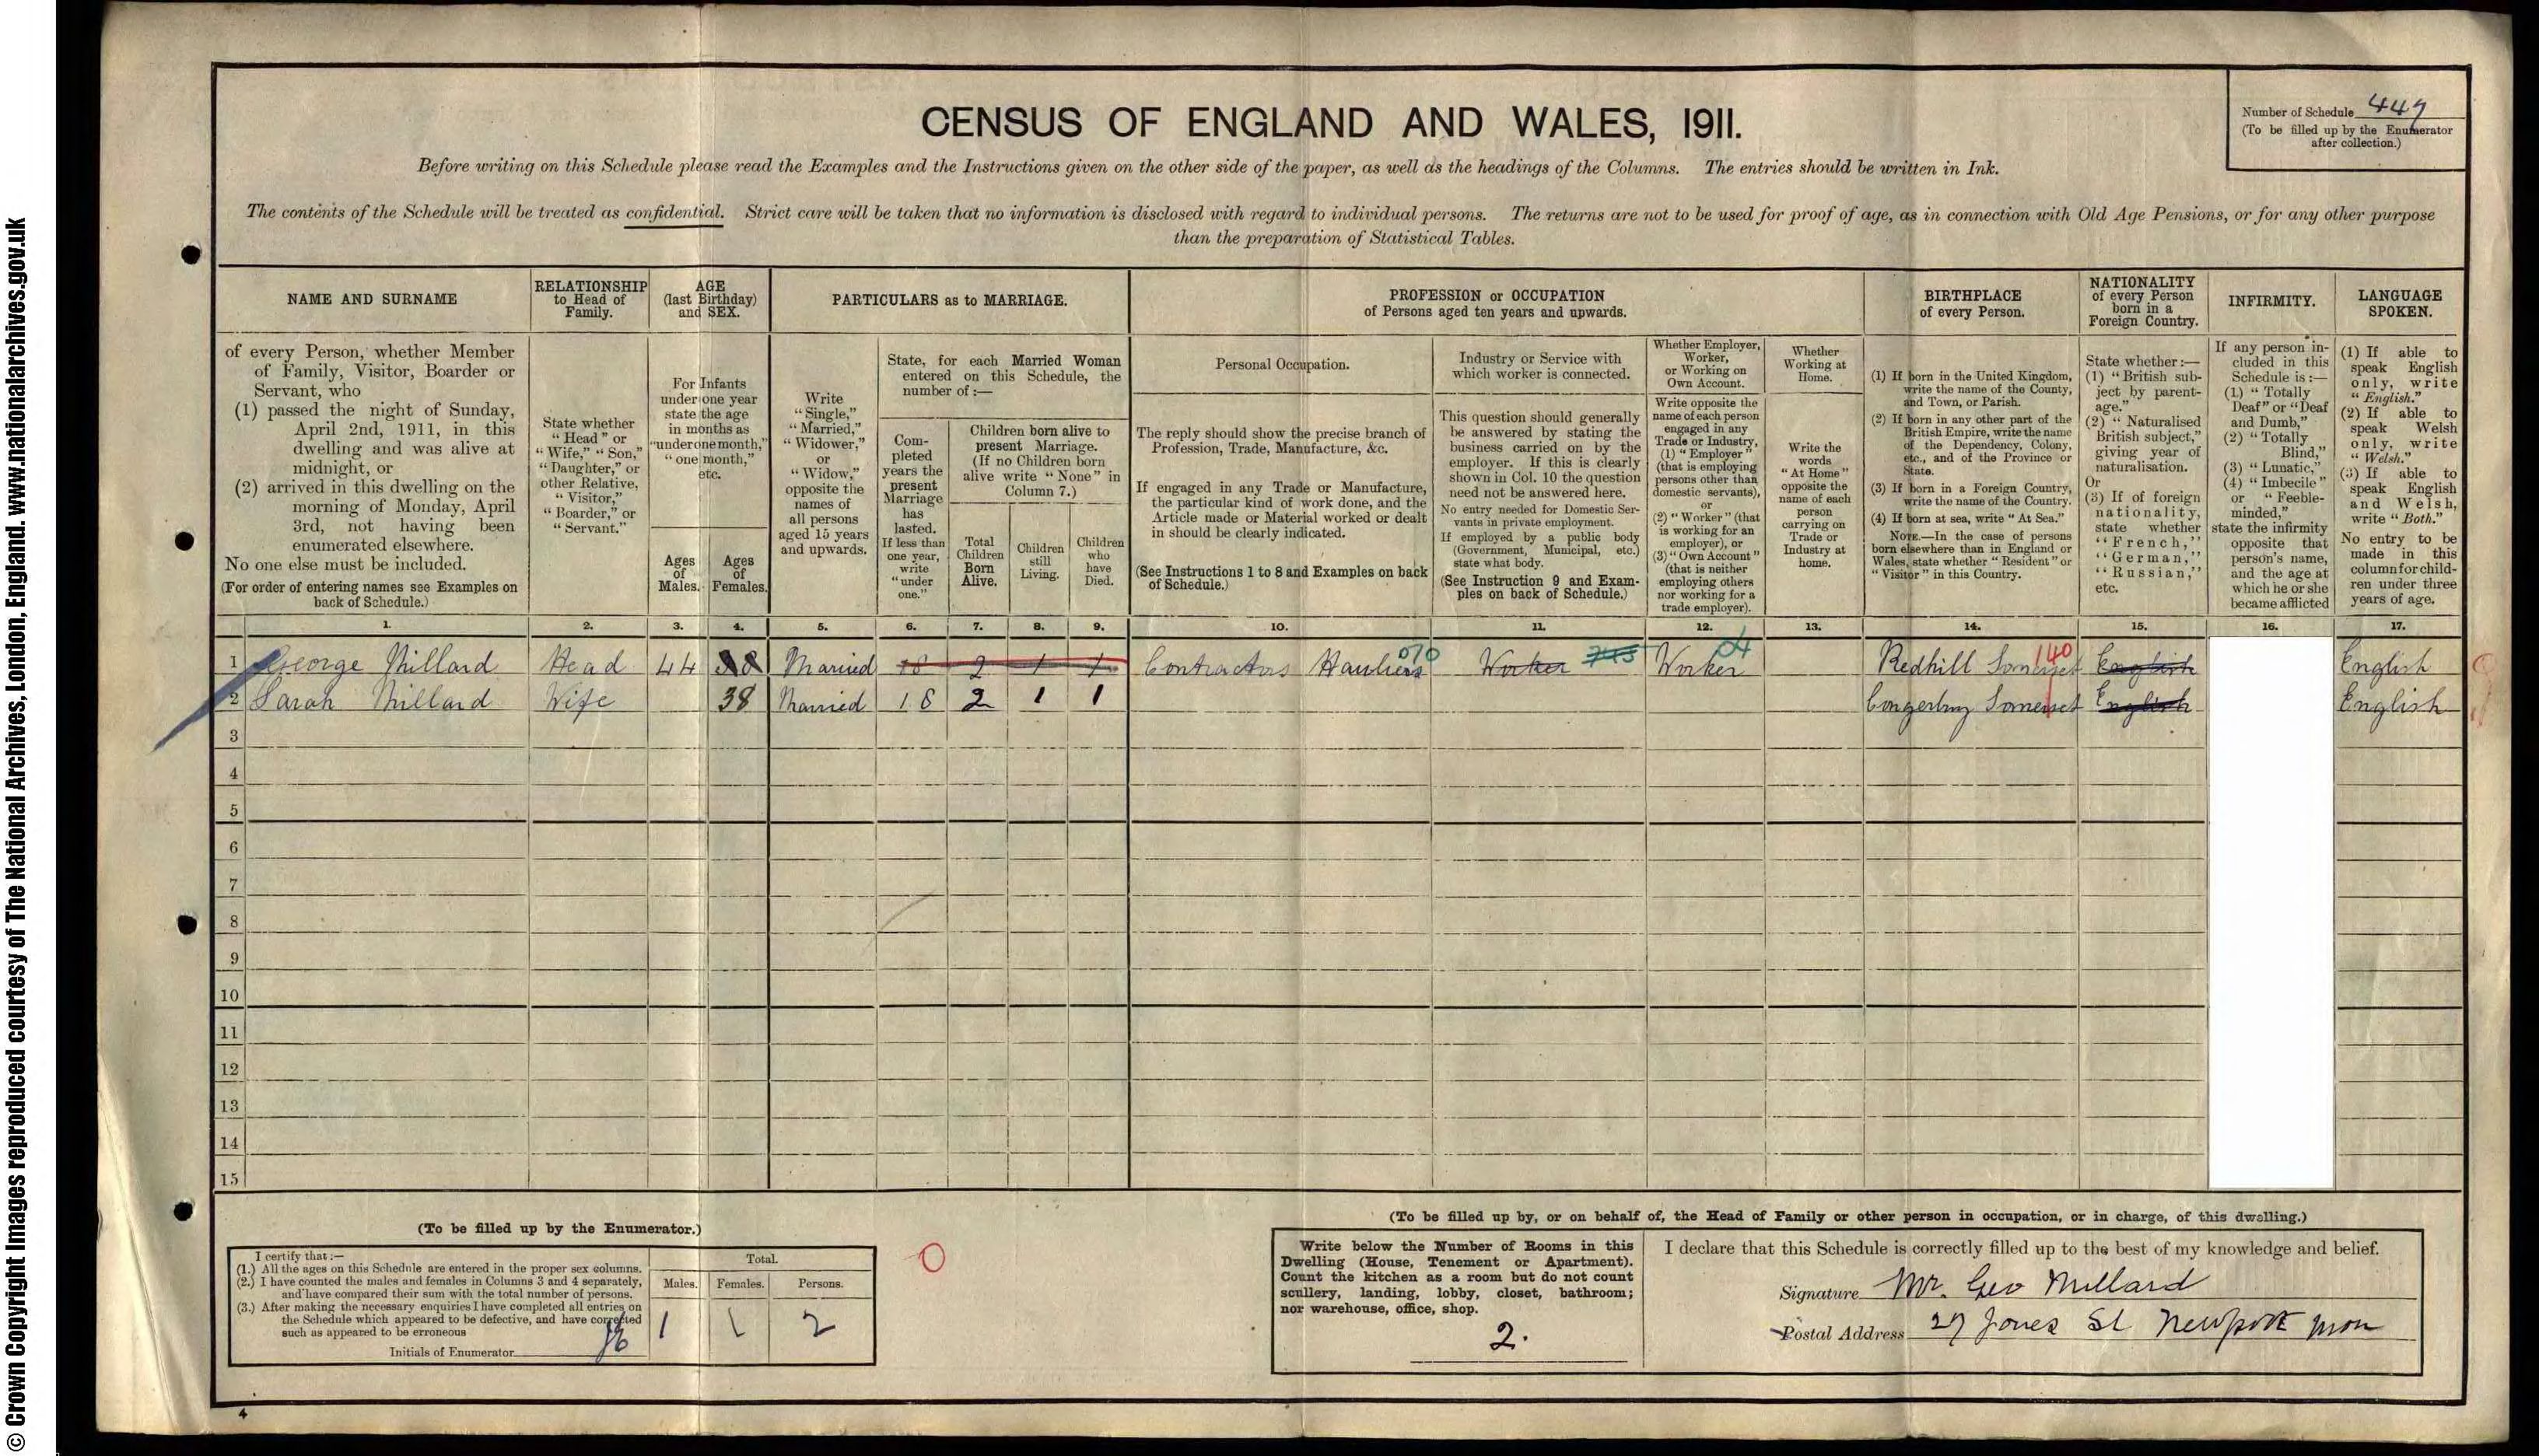 CENSUS OF ENGLAND AND WALES, 1911.
Number of Schedule 449
(To be filled up by the Enumerator
after collection.)
Before writing on this Schedule please read the Examples and the Instructions given on the other side of the paper, as well as the headings of the Columns. The entries should be written in Ink.
The contents of the Schedule will be treated as confidential. Strict care will be taken that no information is disclosed with regard to individual persons. The returns are not to be used for proof of age, as in connection with Old Age Pensions, or for any other purpose
than the preparation of Statistical Tables.
NAME AND SURNAME
of every Person, whether Member
of Family, Visitor, Boarder or
Servant, who
(1) passed the night of Sunday,
April 2nd, 1911, in this
dwelling and was alive at
midnight, or
(2) arrived in this dwelling on the
morning of Monday, April
3rd, not having been
enumerated elsewhere.
No one else must be included.
(For order of entering names see Examples on
back of Schedule.)
RELATIONSHIP
to Head of
Family.
State whether
"Head" or
"Wife," "Son,"
"Daughter," or
other Relative,
"Visitor,"
"Boarder," or
"Servant."
AGE
(last Birthday)
and SEX.
For Infants
under one year
state the age
in months as
"under one month,"
"one month,"
etc.
Ages
of
Males.
Ages
of
Females.
PARTICULARS as to MARRIAGE.
Write
"Single,"
"Married,"
"Widower,"
or
"Widow,"
opposite the
names of
all persons
aged 15 years
and upwards.
State, for each Married Woman
entered on this Schedule, the
number of:—
Com-
pleted
years the
present
Marriage
has
lasted.
If less than
one year,
write
"under
one."
Children born alive to
present Marriage.
(If no Children born
alive write "None" in
Column 7.)
Total
Children
Born
Alive.
Children
still
Living.
Children
who
have
Died.
PROFESSION or OCCUPATION
of Persons aged ten years and upwards.
Personal Occupation.
The reply should show the precise branch of
Profession, Trade, Manufacture, &c.
If engaged in any Trade or Manufacture,
the particular kind of work done, and the
Article made or Material worked or dealt
in should be clearly indicated.
(See Instructions 1 to 8 and Examples on back
of Schedule.)
Industry or Service with
which worker is connected.
This question should generally
be answered by stating the
business carried on by the
employer. If this is clearly
shown in Col. 10 the question
need not be answered here.
No entry needed for Domestic Ser-
vants in private employment.
If employed by a public body
(Government, Municipal, etc.)
state what body.
(See Instruction 9 and Exam-
ples on back of Schedule.)
Whether Employer,
Worker,
or Working on
Own Account.
Write opposite the
name of each person
engaged in any
Trade or Industry,
(1) "Employer"
(that is employing
persons other than
domestic servants),
or
(2) "Worker" (that
is working for an
employer), or
(3) "Own Account"
(that is neither
employing others
nor working for a
trade employer).
Whether
Working at
Home.
Write the
words
"At Home"
opposite the
name of each
person
carrying on
Trade or
Industry at
home.
BIRTHPLACE
of every Person.
(1) If born in the United Kingdom,
write the name of the County,
and Town, or Parish.
(2) If born in any other part of the
British Empire, write the name
of the Dependency, Colony,
etc., and of the Province or
State.
(3) If born in a Foreign Country,
write the name of the Country.
(4) If born at sea, write "At Sea."
NOTE.—In the case of persons
born elsewhere than in England or
Wales, state whether "Resident" or
"Visitor" in this Country.
NATIONALITY
of every Person
born in a
Foreign Country.
State whether:—
(1) "British sub-
ject by parent-
age."
(2) "Naturalised
British subject,"
giving year of
naturalisation.
Or
(3) If of foreign
nationality,
state whether
"French,"
"German,"
"Russian,"
etc.
INFIRMITY.
If any person in-
cluded in this
Schedule is:—
(1) "Totally
Deaf" or "Deaf
and Dumb,"
(2) "Totally
Blind,"
(3) "Lunatic,"
(4) "Imbecile"
or "Feeble-
minded,"
state the infirmity
opposite that
person's name,
and the age at
which he or she
became afflicted
LANGUAGE
SPOKEN.
(1) If able to
speak English
only, write
"English."
(2) If able to
speak Welsh
only, write
"Welsh."
(3) If able to
speak English
and Welsh,
write "Both."
No entry to be
made in this
column for child-
ren under three
years of age.
1. 2. 3. 4. 5. 6. 7. 8. 9. 10. 11. 12. 13. 14. 15. 16. 17.
1 George Millard Head 44 38 Married 18 2 1 1 Contractors Hauliers 070 Worker 745 Worker Redhill Somerset 140 English English
2 Sarah Millard Wife 38 Married 18 2 1 1 Congersbury Somerset English English
3
4
5
6
7
8
9
10
11
12
13
14
15
(To be filled up by the Enumerator.)
I certify that:—
(1.) All the ages on this Schedule are entered in the proper sex columns.
(2.) I have counted the males and females in Columns 3 and 4 separately,
and have compared their sum with the total number of persons.
(3.) After making the necessary enquiries I have completed all entries on
the Schedule which appeared to be defective, and have corrected
such as appeared to be erroneous
Initials of Enumerator
Total.
Males. Females. Persons.
1 1 2
0
(To be filled up by, or on behalf of, the Head of Family or other person in occupation, or in charge, of this dwelling.)
Write below the Number of Rooms in this
Dwelling (House, Tenement or Apartment).
Count the kitchen as a room but do not count
scullery, landing, lobby, closet, bathroom;
nor warehouse, office, shop.
2.
I declare that this Schedule is correctly filled up to the best of my knowledge and belief.
Signature Mr. Geo Millard
Postal Address 27 Jones St Newport Mon
4
© Crown Copyright Images reproduced courtesy of The National Archives, London, England. www.nationalarchives.gov.uk